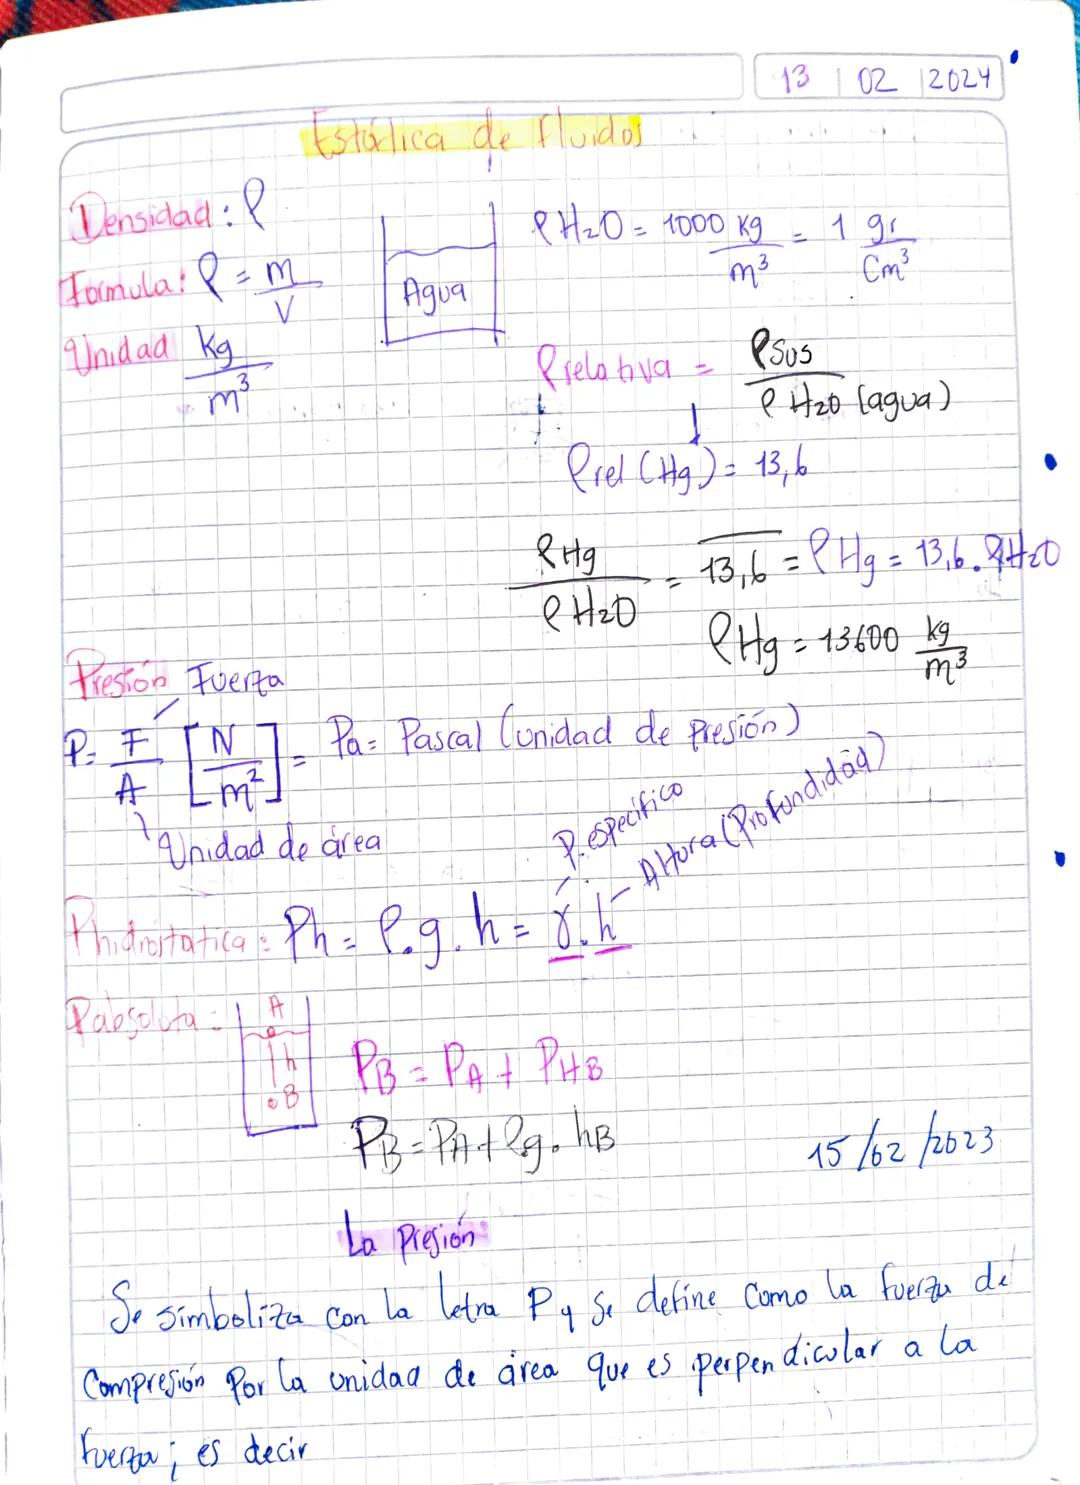 13 | 02 | 2024
Estática de fluidos
Densidad: ρ
Formula: ρ = m/V
Unidad kg/m³
Agua
ρ H₂O = 1000 kg/m³ = 1 gr/Cm³
ρrelativa = ρsus / ρ H₂O (agua)
ρrel (Hg) = 13,6
ρHg / ρ H₂O = 13,6 = ρHg = 13,6 . ρH₂O
ρHg = 13600 kg/m³
Presión Fuerza
P = F/A [N/m²] = Pa = Pascal (unidad de Presión)
Unidad de área
P. especifico
Altura (Profundidad)
Phidrostatica = Ph = ρ.g.h = γ.h
Pabsoluta =
A
h
B
PB = PA + PHB
PB = PA + ρg.hB
15/02/2023
La Presión
Se simboliza con la letra P y se define como la fuerza de
Compresión Por la unidad de área que es perpendicular a la
fuerza; es decir